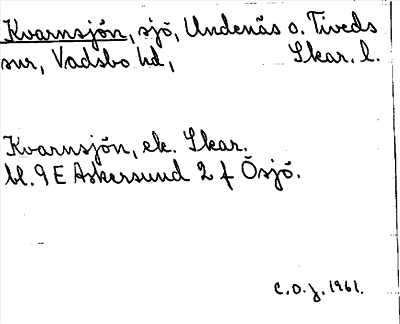 Kvarnsjön, sjö, Undenäs o. Tiveds
snr, Vadsbo hd, Skar. l.
Kvarnsjön, ek. Skar.
bl. 9 E Askersund 2 f Ösjö.
C.O.J. 1961.